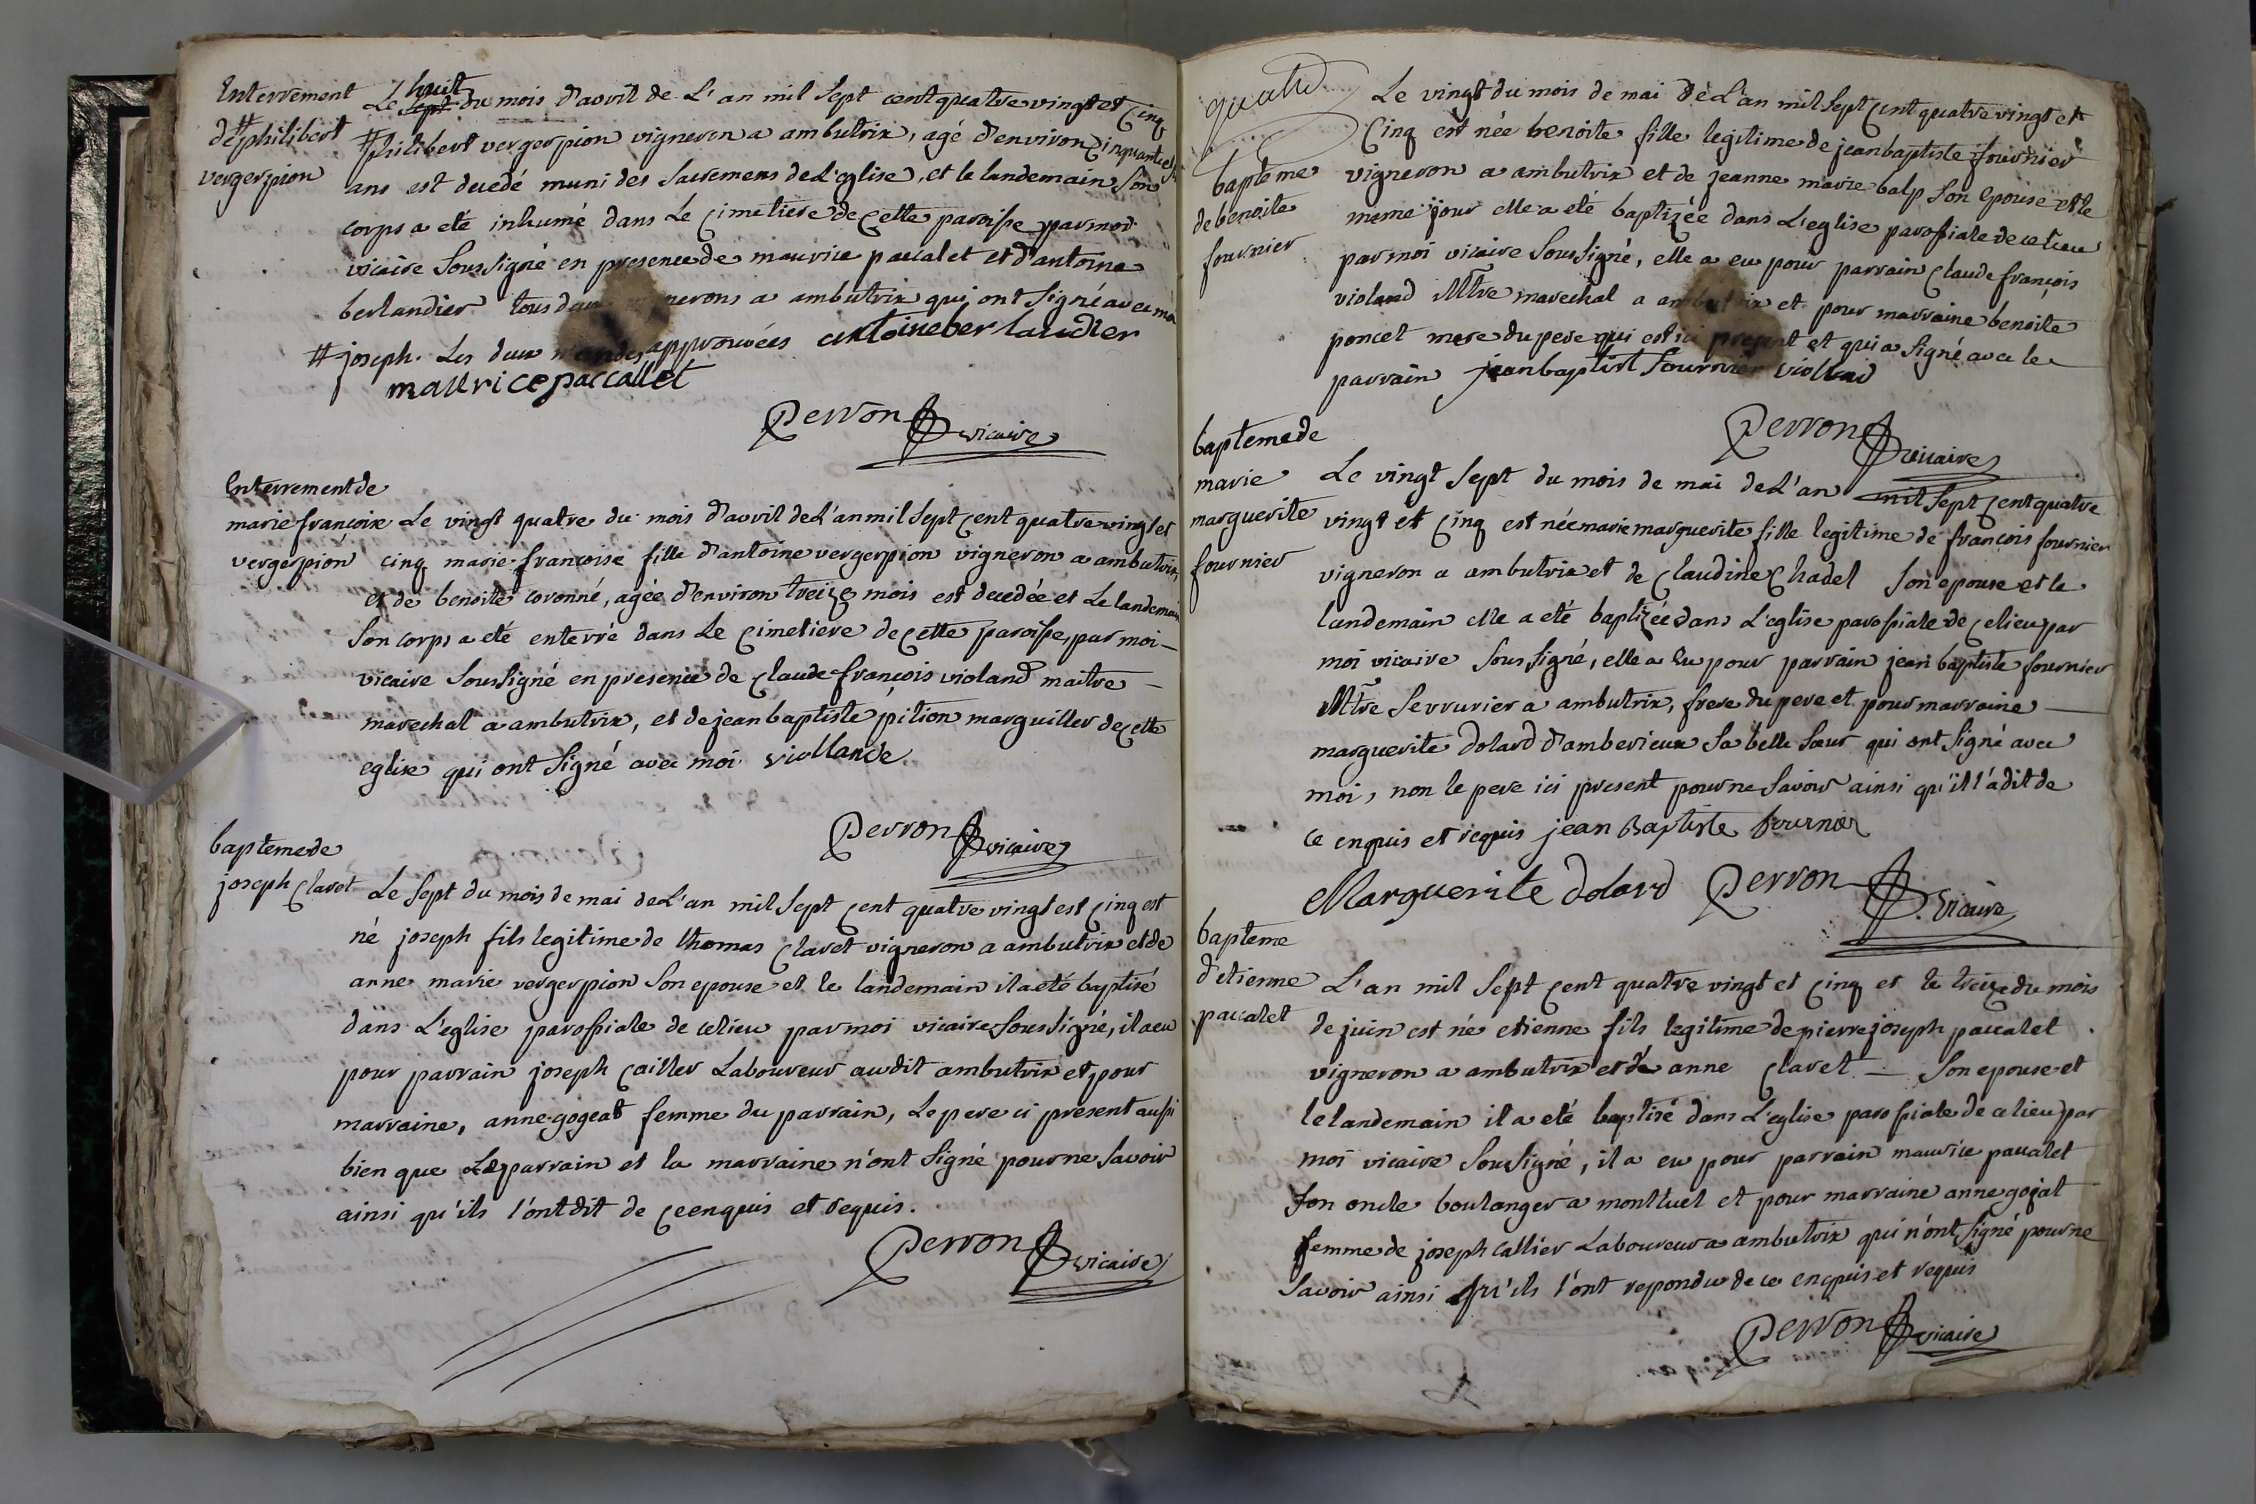 Enterrement
d'# philibert
vergerpion
huit
Le sept du mois d'avril de L'an mil sept cent quatre vingt et cinq
# philibert vergerpion vigneron a ambutrix, agé d'environ cinquante
ans est decedé muni des sacremens de L'eglise, et le landemain son
corps a eté inhumé dans Le cimetiere de cette paroisse par moi
vicaire soussigné en presence de maurice paccalet et d'antoine
berlandier tous deux vignerons a ambutrix qui ont signé avec moi
# joseph. Les deux approuvées antoine berlandier
maurice paccallet
Perron vicaire
Enterrement de
marie françoise
vergerpion
Le vingt quatre du mois d'avril de L'an mil sept cent quatre vingt et
cinq marie françoise fille d'antoine vergerpion vigneron a ambutrix
et de benoite coronné, agée d'environ treize mois est decedée et Le landemain
son corps a eté enterré dans Le cimetiere de cette paroisse par moi
vicaire soussigné en presence de claude françois violand maitre
marechal a ambutrix, et de jean baptiste pition marguiller de cette
eglise qui ont signé avec moi viollande
Perron vicaire
bapteme de
joseph claret
Le sept du mois de mai de L'an mil sept cent quatre vingt et cinq est
né joseph fils legitime de thomas claret vigneron a ambutrix et de
anne marie vergerpion son epouse et le landemain il a eté baptisé
dans L'eglise parossiale de ce lieu par moi vicaire soussigné, il a eu
pour parrain joseph cailler Laboureur audit ambutrix et pour
marraine, anne gogeat femme du parrain, Le pere ci present aussi
bien que Le parrain et la marraine n'ont signé pour ne savoir
ainsi qu'ils l'ont dit de ce enquis et requis.
Perron vicaire
quatre
bapteme
de benoite
fournier
Le vingt du mois de mai de L'an mil sept cent quatre vingt et
cinq est née benoite fille legitime de jean baptiste fournier
vigneron a ambutrix et de jeanne marie balp son epouse et le
meme jour elle a eté baptizée dans L'eglise parossiale de ce lieu
par moi vicaire soussigné, elle a eu pour parrain claude françois
violand Mtre marechal a ambutrix et pour marraine benoite
poncet mere du pere qui est ici present et qui a signé avec le
parrain jean baptist fournier violland
Perron vicaire
bapteme de
marie
marguerite
fournier
Le vingt sept du mois de mai de L'an mil sept cent quatre
vingt et cinq est née marie marguerite fille legitime de françois fournier
vigneron a ambutrix et de claudine chadel son epouse et le
landemain elle a eté baptizée dans L'eglise parossiale de ce lieu par
moi vicaire soussigné, elle a eu pour parrain jean baptiste fournier
Mtre serrurier a ambutrix, frere du pere et pour marraine
marguerite dolard d'amberieux sa belle sœur qui ont signé avec
moi, non le pere ici present pour ne savoir ainsi qu'il l'a dit de
ce enquis et requis jean Baptiste fournier
Marguerite dolard Perron vicaire
bapteme
d'etienne
paccalet
L'an mil sept cent quatre vingt et cinq et le treize du mois
de juin est né etienne fils legitime de pierre joseph paccalet
vigneron a ambutrix et de anne claret son epouse et
le landemain il a eté baptisé dans L'eglise parossiale de ce lieu par
moi vicaire soussigné, il a eu pour parrain maurice paccalet
son oncle boulanger a montluel et pour marraine anne gojat
femme de joseph callier Laboureur a ambutrix qui n'ont signé pour ne
savoir ainsi qu'ils l'ont repondu de ce enquis et requis
Perron vicaire